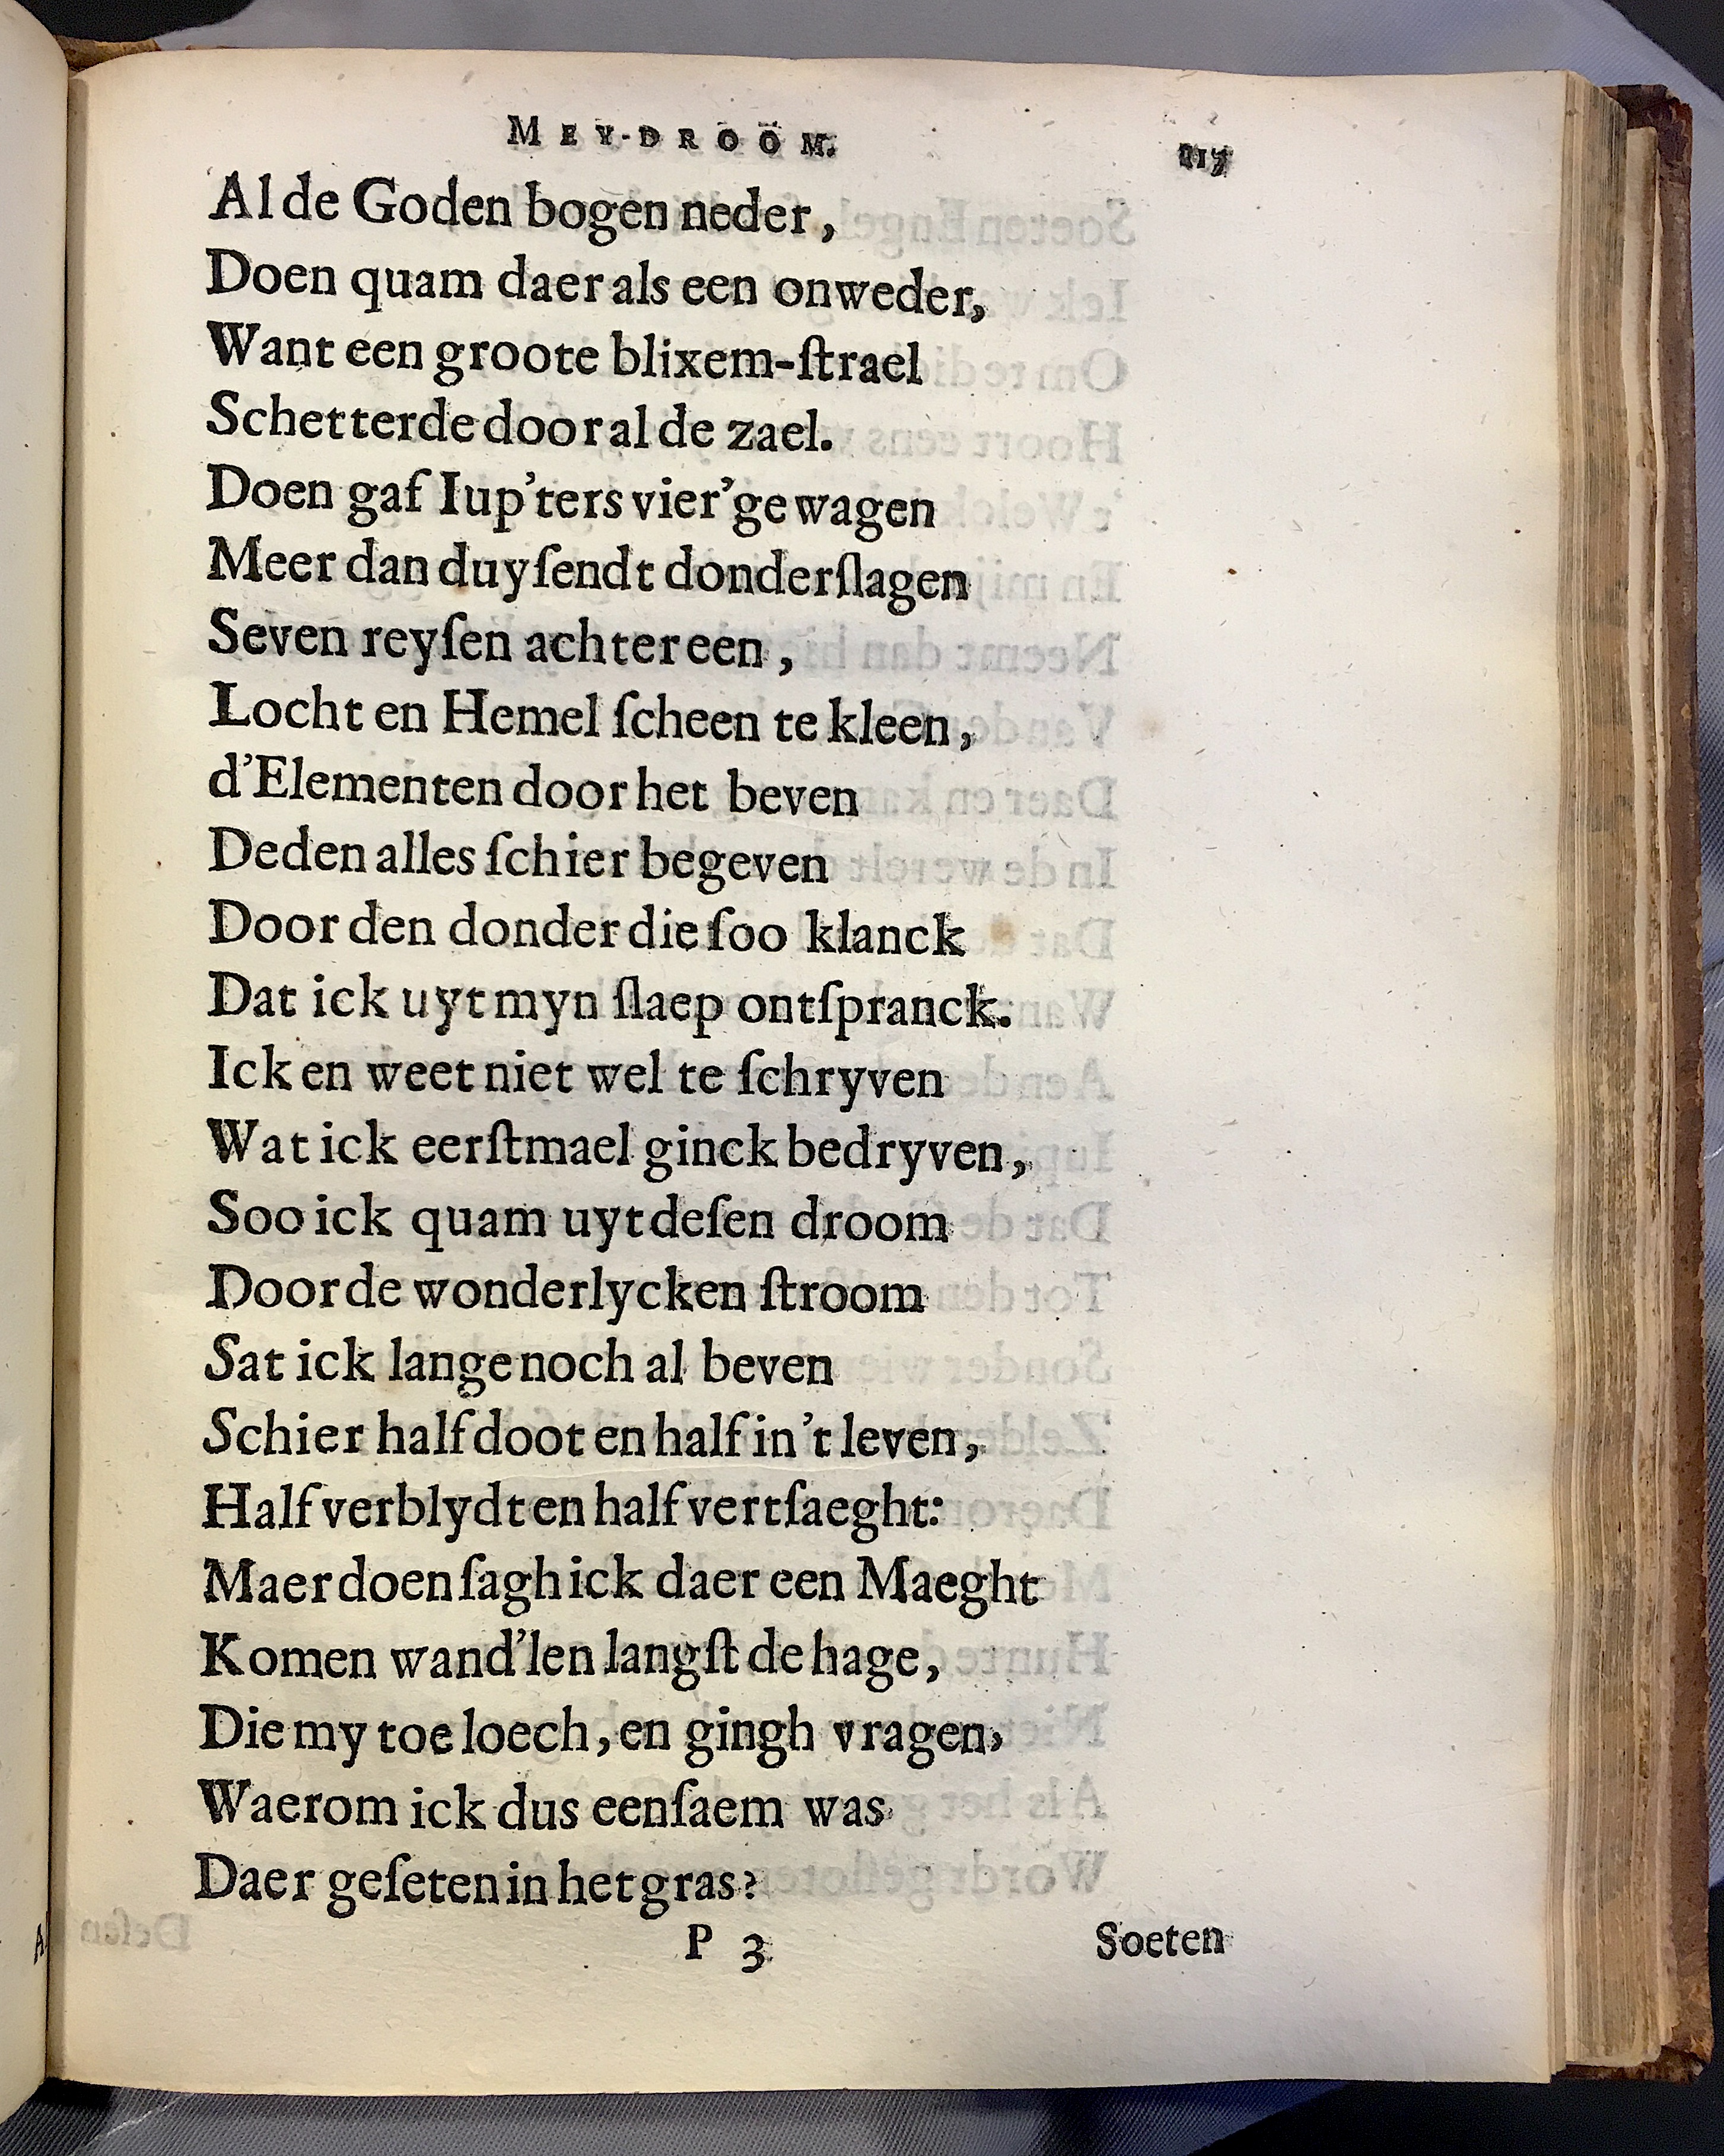 MEY-DROOM. 117
Al de Goden bogen neder,
Doen quam daer als een onweder,
Want een groote blixem-ſtrael
Schetterde door al de zael.
Doen gaf Iup'ters vier'ge wagen
Meer dan duyſendt donderſlagen
Seven reyſen achter een,
Locht en Hemel ſcheen te kleen,
d'Elementen door het beven
Deden alles ſchier begeven
Door den donder die ſoo klanck
Dat ick uyt myn ſlaep ontſpranck.
Ick en weet niet wel te ſchryven
Wat ick eerſtmael ginck bedryven,
Soo ick quam uyt deſen droom
Door de wonderlycken ſtroom
Sat ick lange noch al beven
Schier half doot en half in't leven,
Half verblydt en half vertſaeght:
Maer doen ſagh ick daer een Maeght
Komen wand'len langſt de hage,
Die my toe loech, en gingh vragen,
Waerom ick dus eenſaem was
Daer geſeten in het gras?
P 3 Soeten